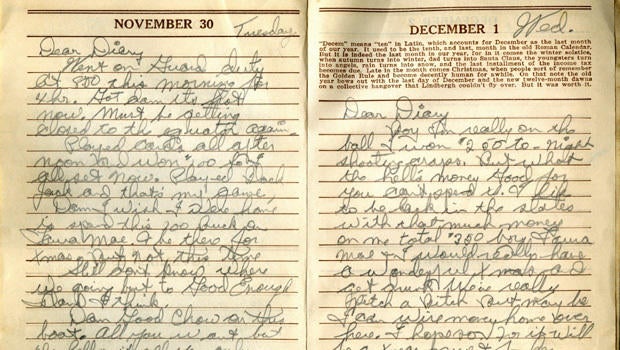 NOVEMBER 30
Tuesday
Dear Diary
Went on Guard duty
at 800 this morning for
4 hr. Hot damn its hot
now. Must be getting
closed to the equator again.
Played Cards all after
noon & I won $200 but
all set now. Played Black
Jack and that's my game.
Dam I wish I were home
to spend this 200 buck on
Laura Mae. & be there for
Xmas. But not this time
Still don't know where
we going but to Good Enough
Island I think.
Dam Good Chow on this
boat. All you want but
DECEMBER 1
Wed.
"Decem" means "ten" in Latin, which accounts for December as the last month
of our year. It used to be the tenth, and last, month in the old Roman Calendar.
But it is indeed the last month in our year, for in it comes the winter solstice,
when autumn turns into winter, dad turns into Santa Claus, the youngsters turn
into angels, rain turns into snow, and the last installment of the income tax
becomes due. Late in the month comes Christmas, when people sort of remember
the Golden Rule and become decently human for awhile. On that note the old
year bows out with the last day of December and the new twelve-month dawns
on a collective hangover that Lindbergh couldn't fly over. But it was worth it.
Dear Diary
Boy I'm really on the
ball I won $250 to-night
shooting craps. But what
the hell's money Good for
you can't spend it. I like
to be back in the states
with that much money
on me total $250 boy Laura
Mae & I would really have
a wonderful Xmas and
get drunk & we're really
pitch a bitch But may be
I can wire money home over
here. I hope so for it will
be a